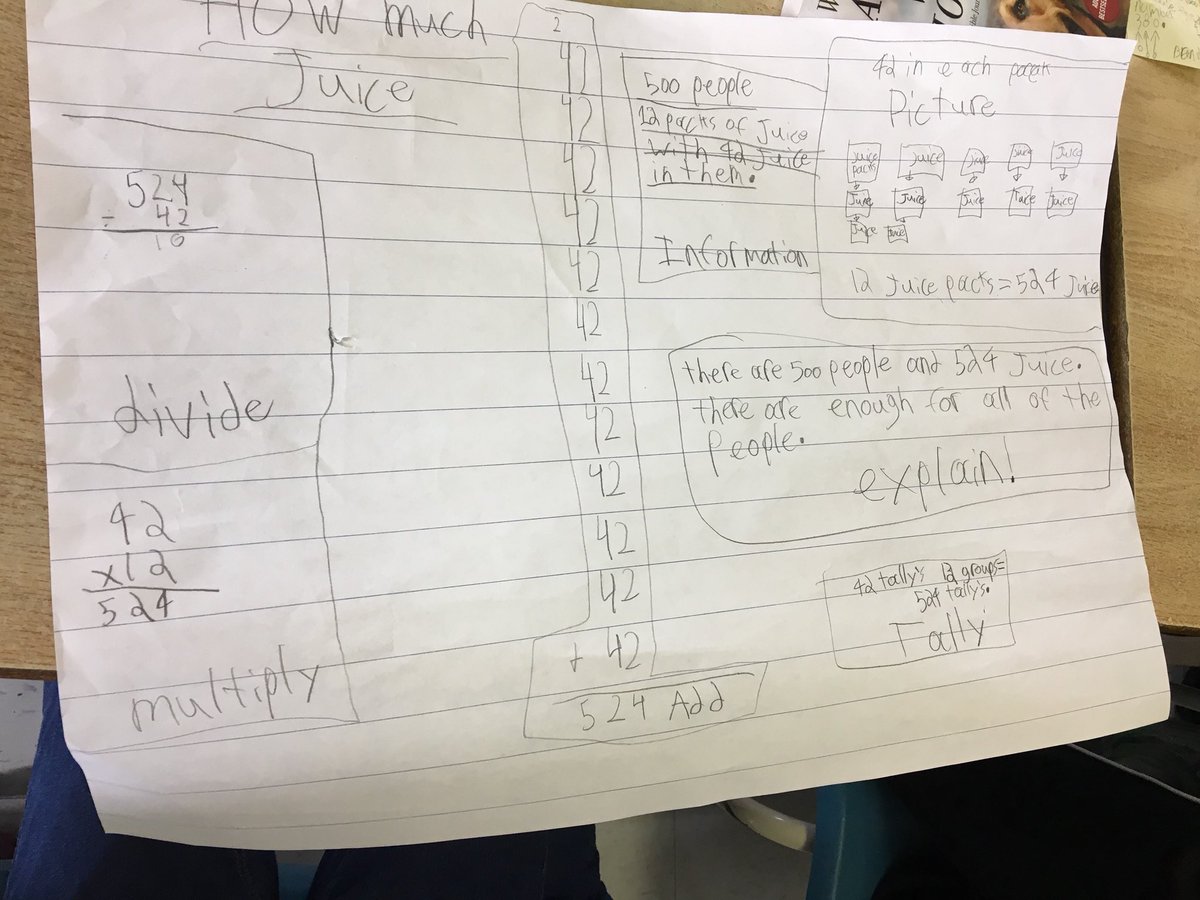 How much
Juice
524
÷ 42
10
divide
42
x12
524
multiply
2
42
42
42
42
42
42
42
42
42
42
42
+ 42
524 Add
500 people
12 packs of Juice
with 42 Juice
in them.
Information
42 in each
Picture
Juice packs Juice Juice Juice Juice
Juice Juice Juice Juice Juice
Juice Juice
12 Juice packs = 524 Juice
there are 500 people and 524 Juice.
there are enough for all of the
people.
explain!
42 tally's 12 groups=
524 tally's.
Tally